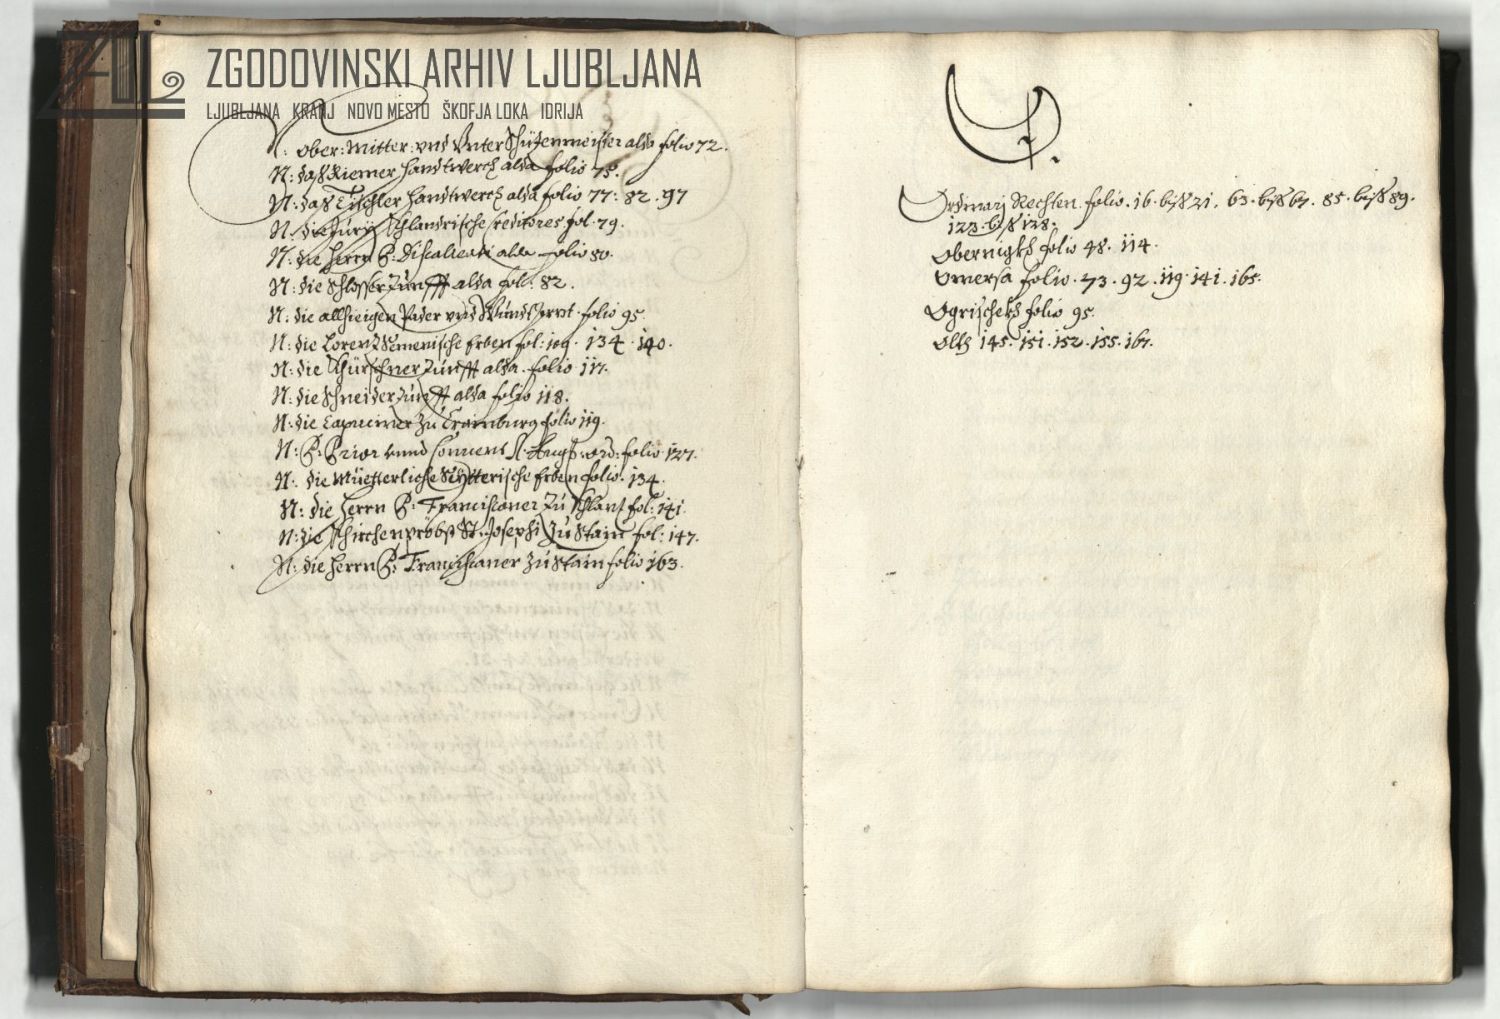 ZGODOVINSKI ARHIV LJUBLJANA
LJUBLJANA KRANJ NOVO MESTO ŠKOFJA LOKA IDRIJA
N: ober: Mitter: vnd Vnter Schüzenmeister alda folio 72.
N: daß Riemer Handtwerch alda folio 75.
N: daß Tischler Handtwerch alda folio 77: 82. 97
N: die Creditores fol. 79.
N: die Herrn P: Discalceati alda folio 80.
N: die Schlosser Zunfft alda fol: 82.
N: die allhieigen Pader vnd Wundtärzt folio 95.
N: die Lorenz Erben fol: 109. 134. 140.
N: die Khürschner Zunfft alda folio 117.
N: die Schneider Zunfft alda folio 118.
N: die Capuciner zu Crainburg folio 119.
N: P: Prior vnnd Conuent S. ord: folio 127.
N: die Müetterliche Erben folio. 134.
N: die Herrn P: Franciscaner zu fol: 141.
N: die Khirchenpröbst St: Josephi zu Stain fol: 147.
N: die Herrn P: Franciscaner zu Stain folio 163.
O.
Ordinary Rechten. folio. 16. biß 21. 63. biß 67. 85. biß 89.
123. biß 128.
Obernigkh folio 48. 114.
Omersa folio. 73. 92. 119. 141. 165.
Ogrischekh folio 95.
145. 151. 152. 155. 167.